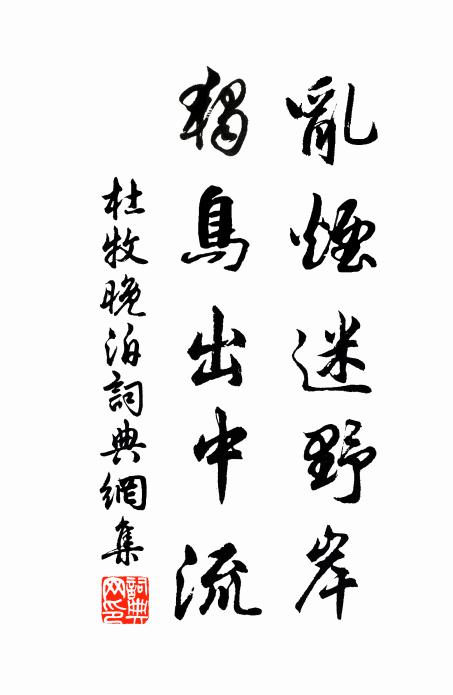 亂煙迷野岸
獨鳥出中流
杜牧晚泊詞典網集
詞典網印